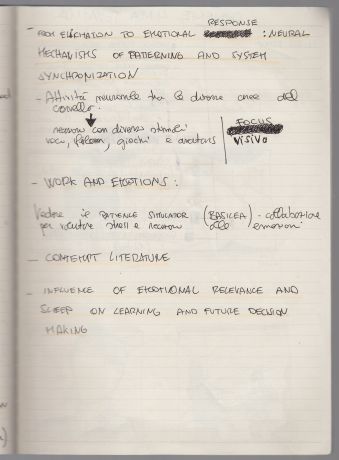 RESPONSE
- FROM ELICITATION TO EMOTIONAL : NEURAL
MECHANISMS OF PATTERNING AND SYSTEM
SYNCHRONIZATION
- Attività neuronale tra le diverse aree del
cervello.
reazioni con diversi stimoli FOCUS
voci, giochi e avatars VISIVO
- WORK AND EMOTIONS :
Vedere il PATIENCE SIMULATOR (BASILEA) - collaborazione
per valutare stress e reazioni alle emozioni
- CONTEMPT LITERATURE
- INFLUENCE OF EMOTIONAL RELEVANCE AND
SLEEP ON LEARNING AND FUTURE DECISION
MAKING